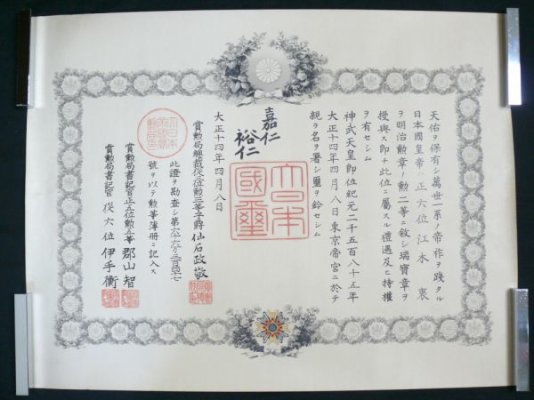 天佑ヲ保有シ萬世一系ノ帝祚ヲ踐タル
日本國皇帝ハ正六位江木衷
ヲ明治勲章ノ勲二等ニ敍シ瑞寶章ヲ
授與ス即チ此位ニ屬スル禮遇及ヒ特權
ヲ有セシム
神武天皇即位紀元二千五百八十五年
大正十四年四月八日東京帝宮ニ於テ
親ラ名ヲ署シ璽ヲ鈐セシム
嘉仁
裕仁
大日本國璽
大正十四年四月八日
賞勲局總裁從二位勲一等子爵仙石政敬
此證ヲ勘査シ第六六六三百四七
號ヲ以テ勲等簿冊ニ記入ス
賞勲局書記官正五位勲六等郡山智
賞勲局書記官從六位伊手衡